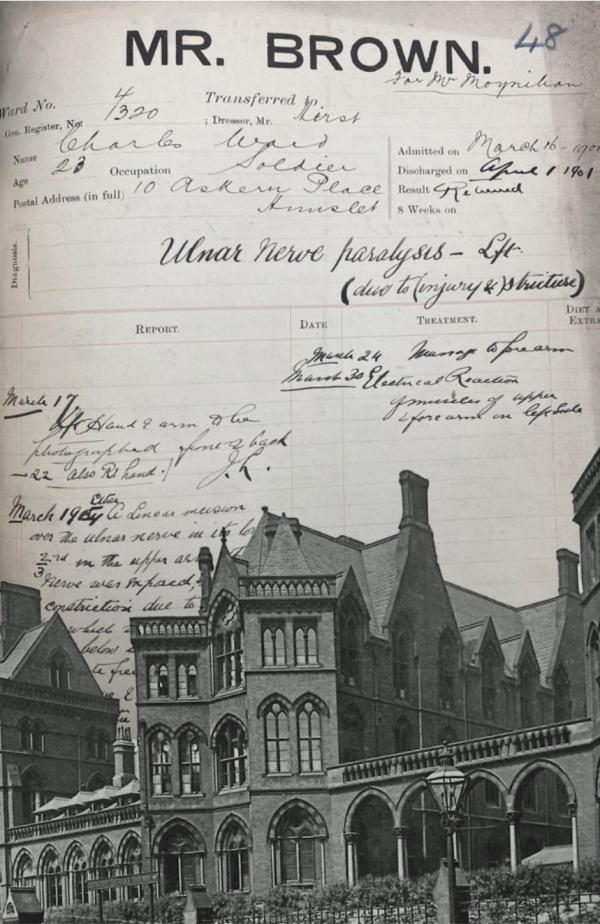 48
MR. BROWN.
For Mr Moynihan
Ward No. 4/320 Transferred to
Gen. Register, No. ; Dresser, Mr. Hirst
Name Charles Ward
Age 23 Occupation Soldier
Postal Address (in full) 10 Askern Place
Hunslet
Admitted on March 16-1901
Discharged on April 1 1901
Result Relieved
8 Weeks on
Diagnosis.
Ulnar Nerve paralysis - Lft.
(due to (injury &) stricture)
REPORT. DATE TREATMENT. DIET A
EXTRA
March 24 Massage to forearm
March 30 Electrical Reaction
of muscles of upper
& forearm on left side
March 17
Lft Hand & arm to be
photographed front & back
- 22 also Rt hand.
March 19 Ether A Linear incision
over the ulnar nerve in its lo
2/3rd in the upper ar
Nerve was exposed,
constriction due to
which
below
te free